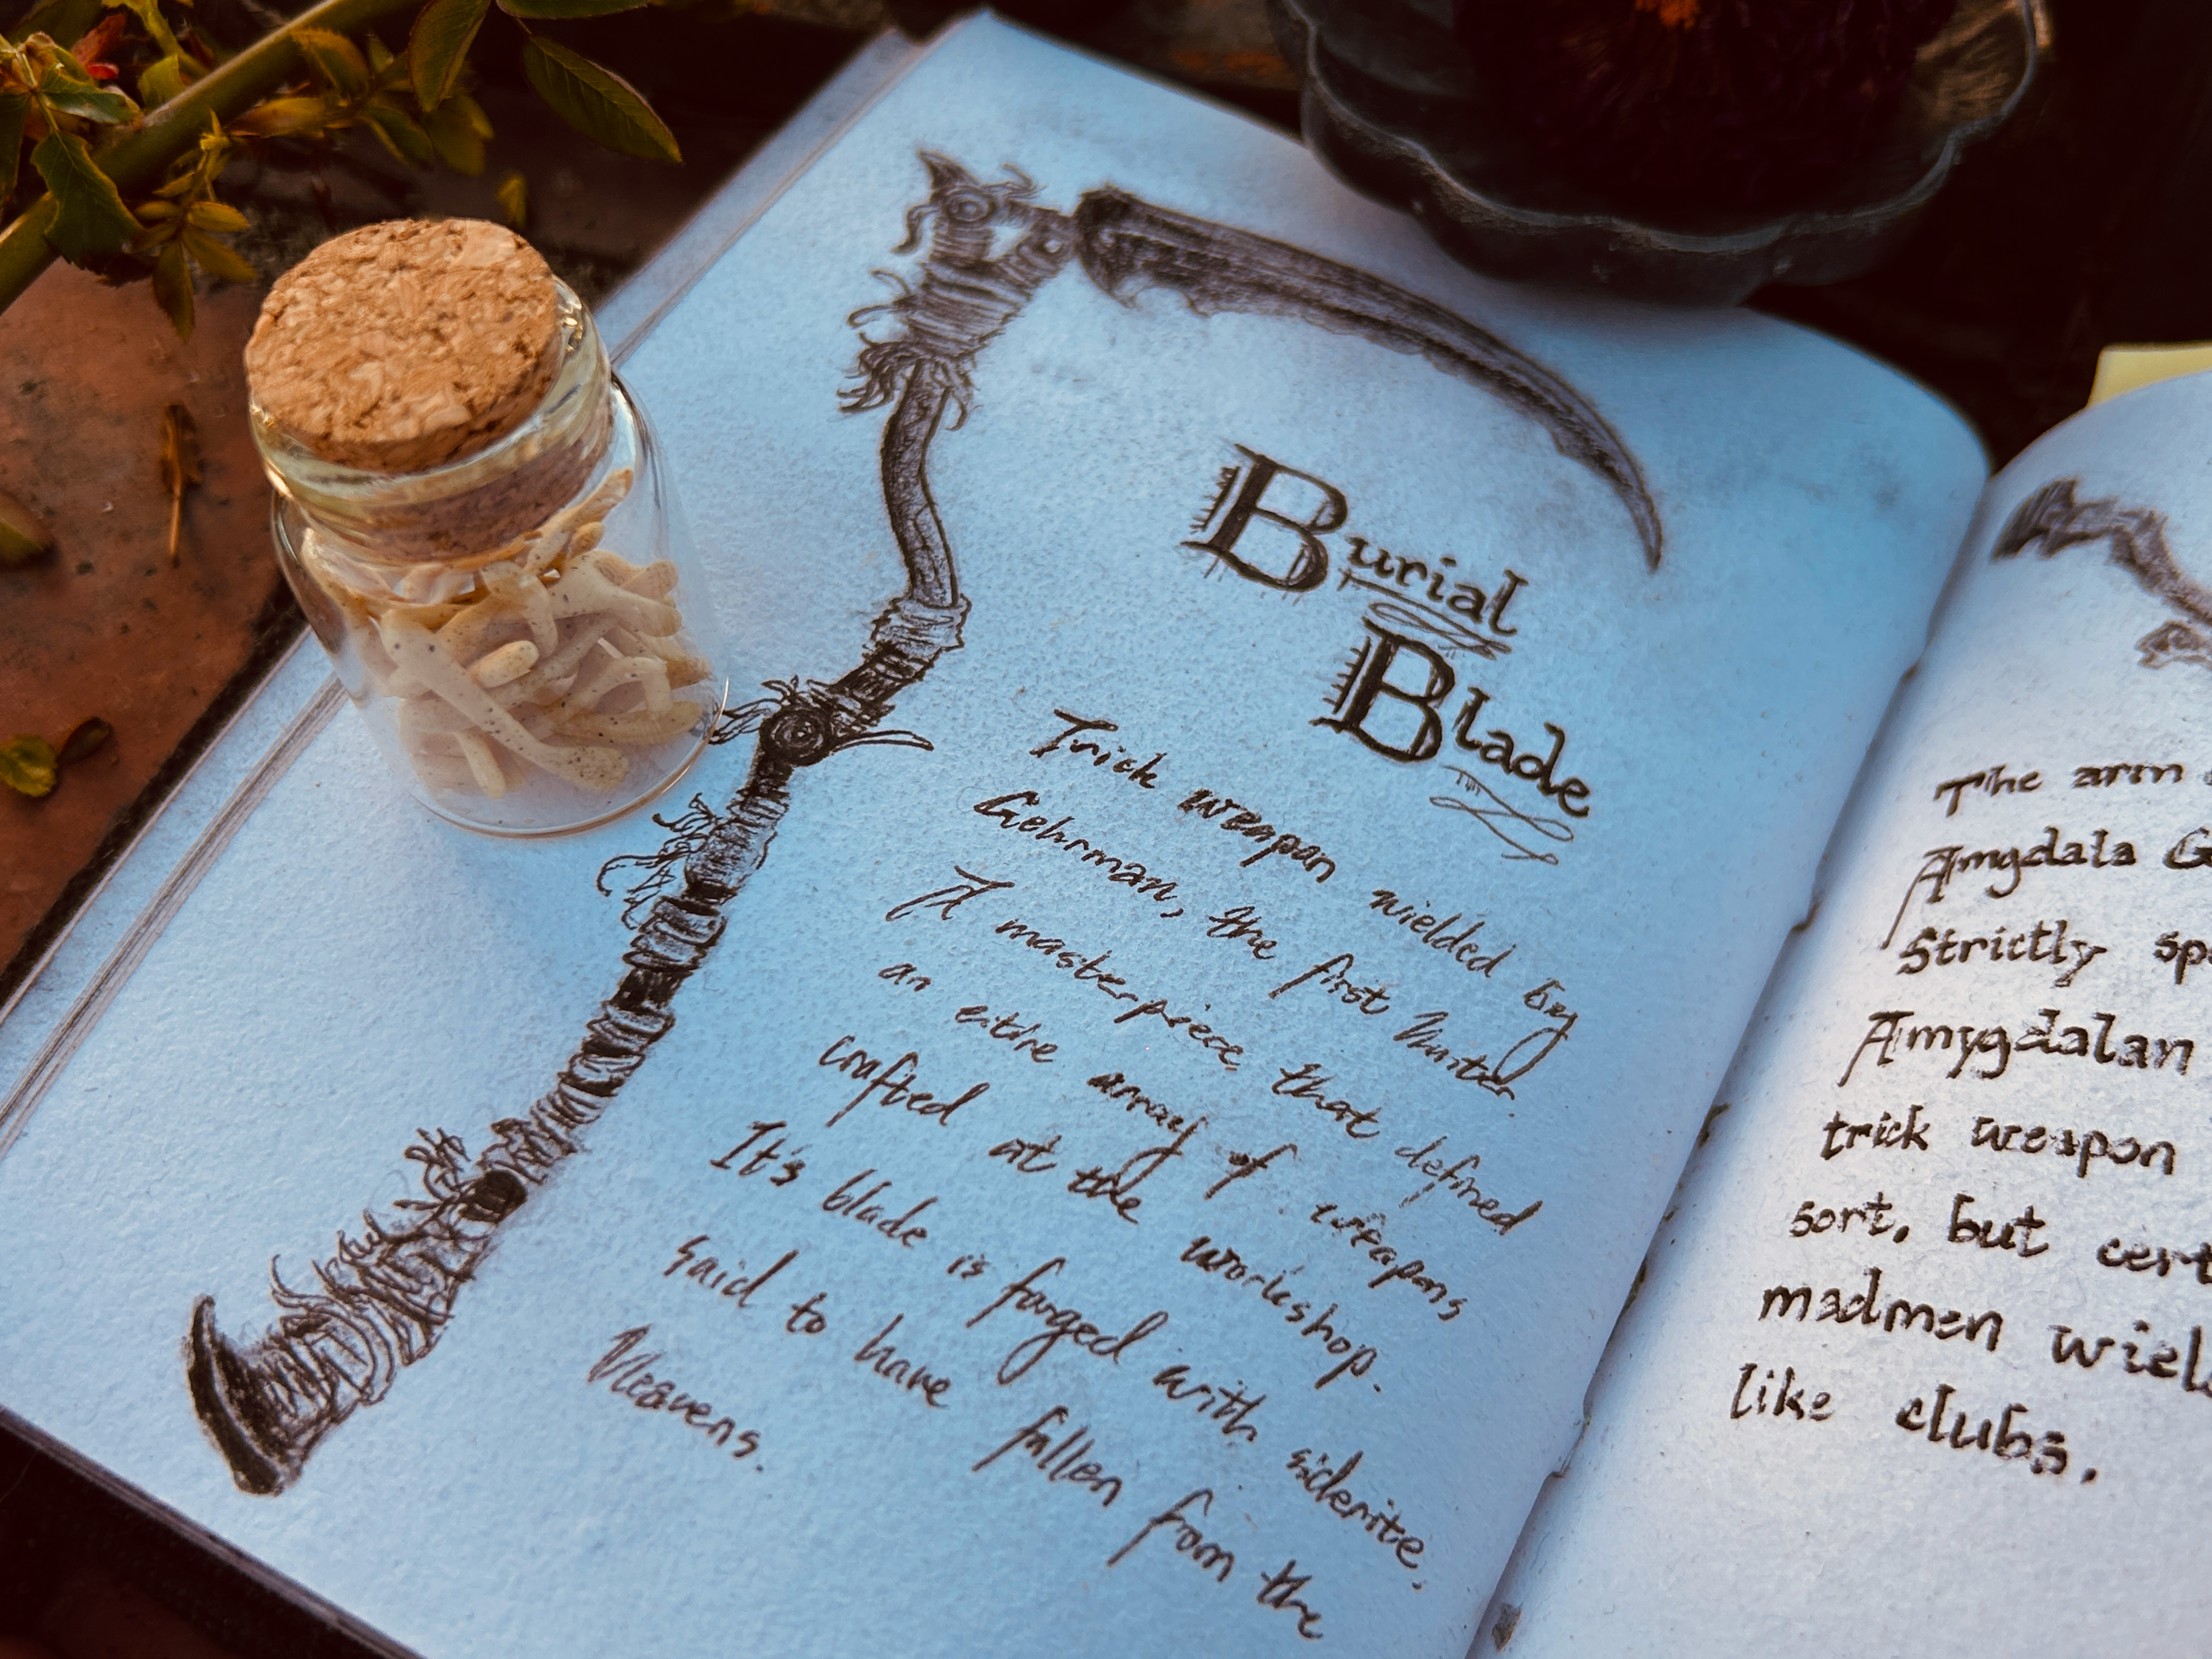 Burial
Blade
Trick weapon wielded by
Gehrman, the first Hunter.
A masterpiece that defined
an entire array of weapons
crafted at the workshop.
It's blade is forged with siderite,
said to have fallen from the
Heavens.
The arm
Amgdala G
Strictly sp
Amygdalan
trick weapon
sort, but cert
madmen wiel
like clubs.